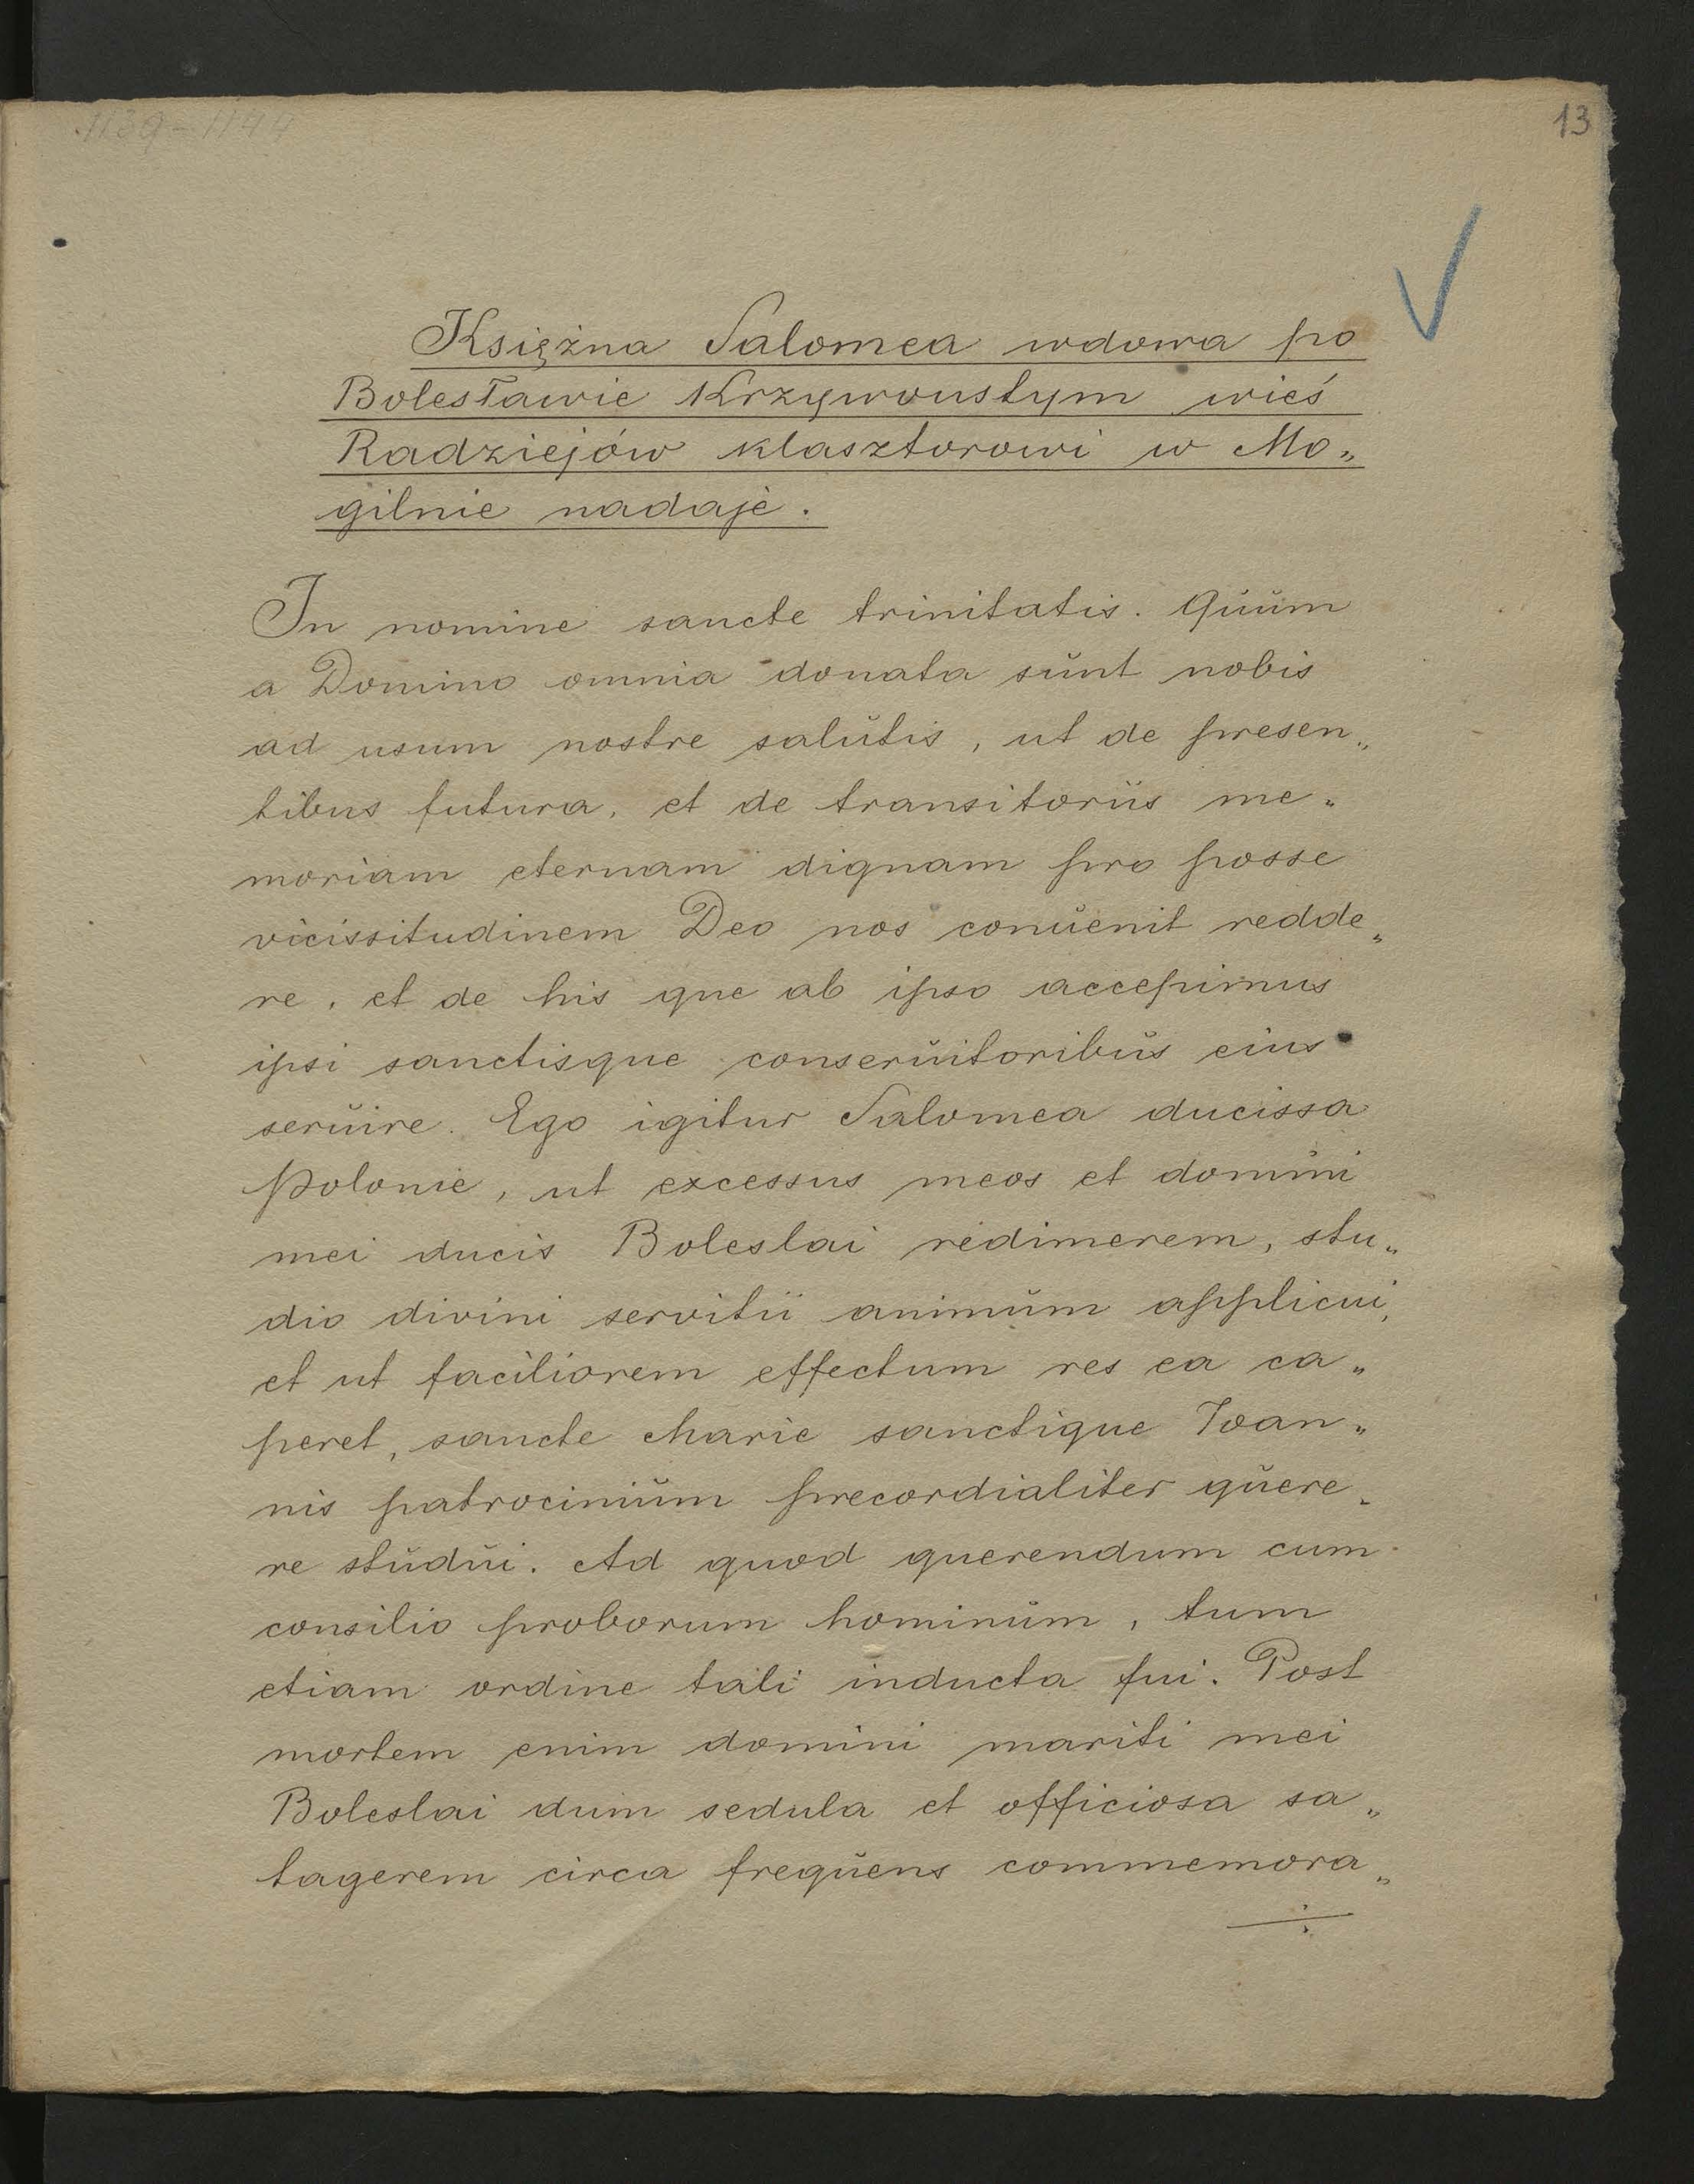 1139-1144
13
Księżna Salomea wdowa po
Bolesławie Krzywoustym wieś
Radziejów klasztorowi w Mo„
gilnie nadaje.
In nomine sancte trinitatis. Quum
a Domino omnia donata sunt nobis
ad usum nostre salutis, ut de presen„
tibus futura, et de transitoriis me„
moriam eternam dignam pro posse
vicissitudinem Deo nos conuenit redde„
re, et de his que ab ipso accepimus
ipsi sanctisque conseruitoribus eius
seruire. Ego igitur Salomea ducissa
Polonie, ut excessus meos et domini
mei ducis Boleslai redimerem, stu„
dio divini servitii animum applicui,
et ut faciliorem effectum res ea ca„
peret, sancte Marie sanctique Ioan„
nis patrocinium precordialiter quere„
re studui. Ad quod querendum cum
consilio proborum hominum, tum
etiam ordine tali inducta fui. Post
mortem enim domini mariti mei
Boleslai dum sedula et officiosa sa„
tagerem circa frequens commemora„